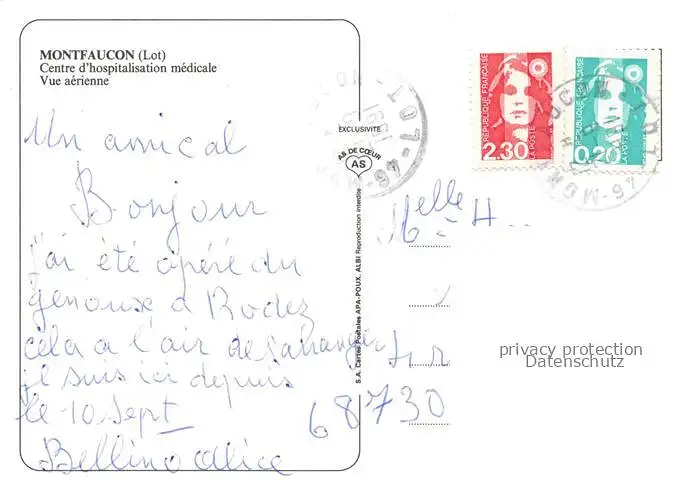 MONTFAUCON (Lot)
Centre d'hospitalisation médicale
Vue aérienne
Un amical
Bonjour
j'ai été opéré du
genoux a Rodez
cela a l'air de s'ahanger
je suis ici depuis
le 10 Sept
Bellino Alice
EXCLUSIVITÉ
AS DE CŒUR
AS
S.A. Cartes Postales APA-POUX, ALBI Reproduction interdite
REPUBLIQUE FRANÇAISE
2,30
LA POSTE
REPUBLIQUE FRANÇAISE
0,20
LA POSTE
LOT-46
1991
46-MON
LOT
Melle H
68730
privacy protection
Datenschutz